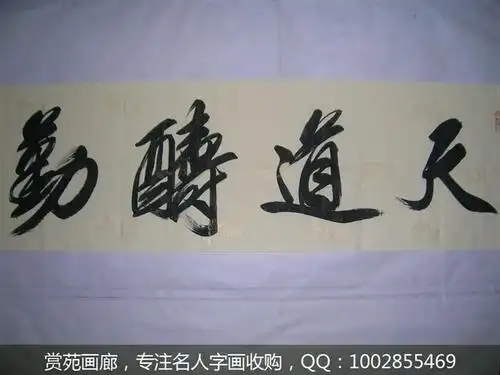 天道酬勤
赏苑画廊，专注名人字画收购，QQ：1002855469